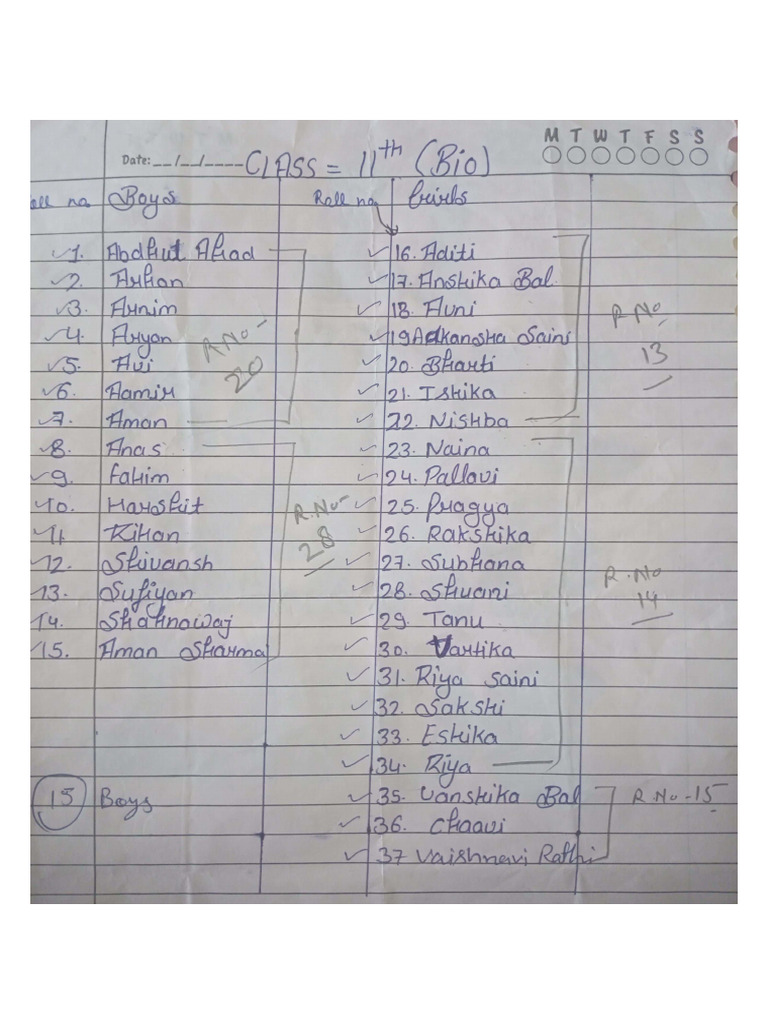 M T W T F S S
Date: __/__/____ CLASS = 11th (Bio)
Roll no. Boys Roll no. Girls
1. Abdhul Ahad 16. Aditi
2. Arhan 17. Anshika Bal.
3. Arnim 18. Avni R No
4. Aryan R No - 19 Adkansha Saini
5. Avi 20 20. Bharti 13
6. Aamir 21. Ishika
7. Aman 22. Nishba
8. Anas 23. Naina
9. Fahim 24. Pallavi
10. Harshit R.No- 25. Pragya
11 Kihan 28 26. Rakshika
12. Shivansh 27. Subhana
13. Sufiyan 28. Shvani R.No
14. Shahnowaj 29. Tanu 14
15. Aman Sharma 30. Vartika
31. Riya Saini
32. Sakshi
33. Eshika
34. Riya
15 Boys 35. Vanshika Bal R.No-15
36. Chaavi
37 Vaishnavi Rathi